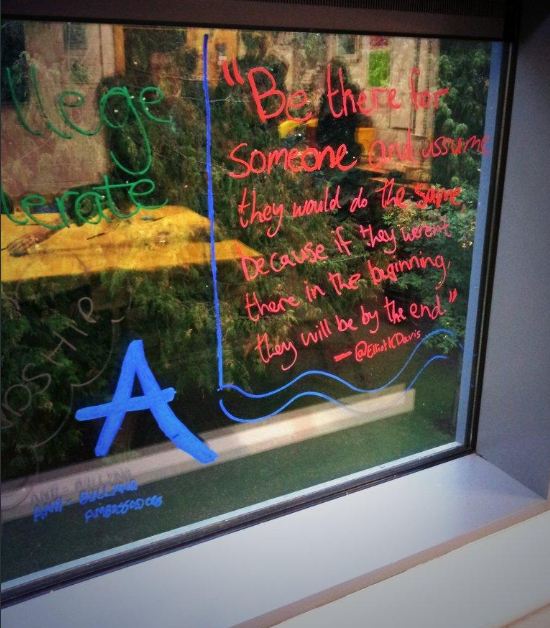 llege
lerate
"Be there for
someone and assume
they would do the same
because if they weren't
there in the beginning,
they will be by the end."
— @ElliotKDavis
A
ANTI-BULLYING